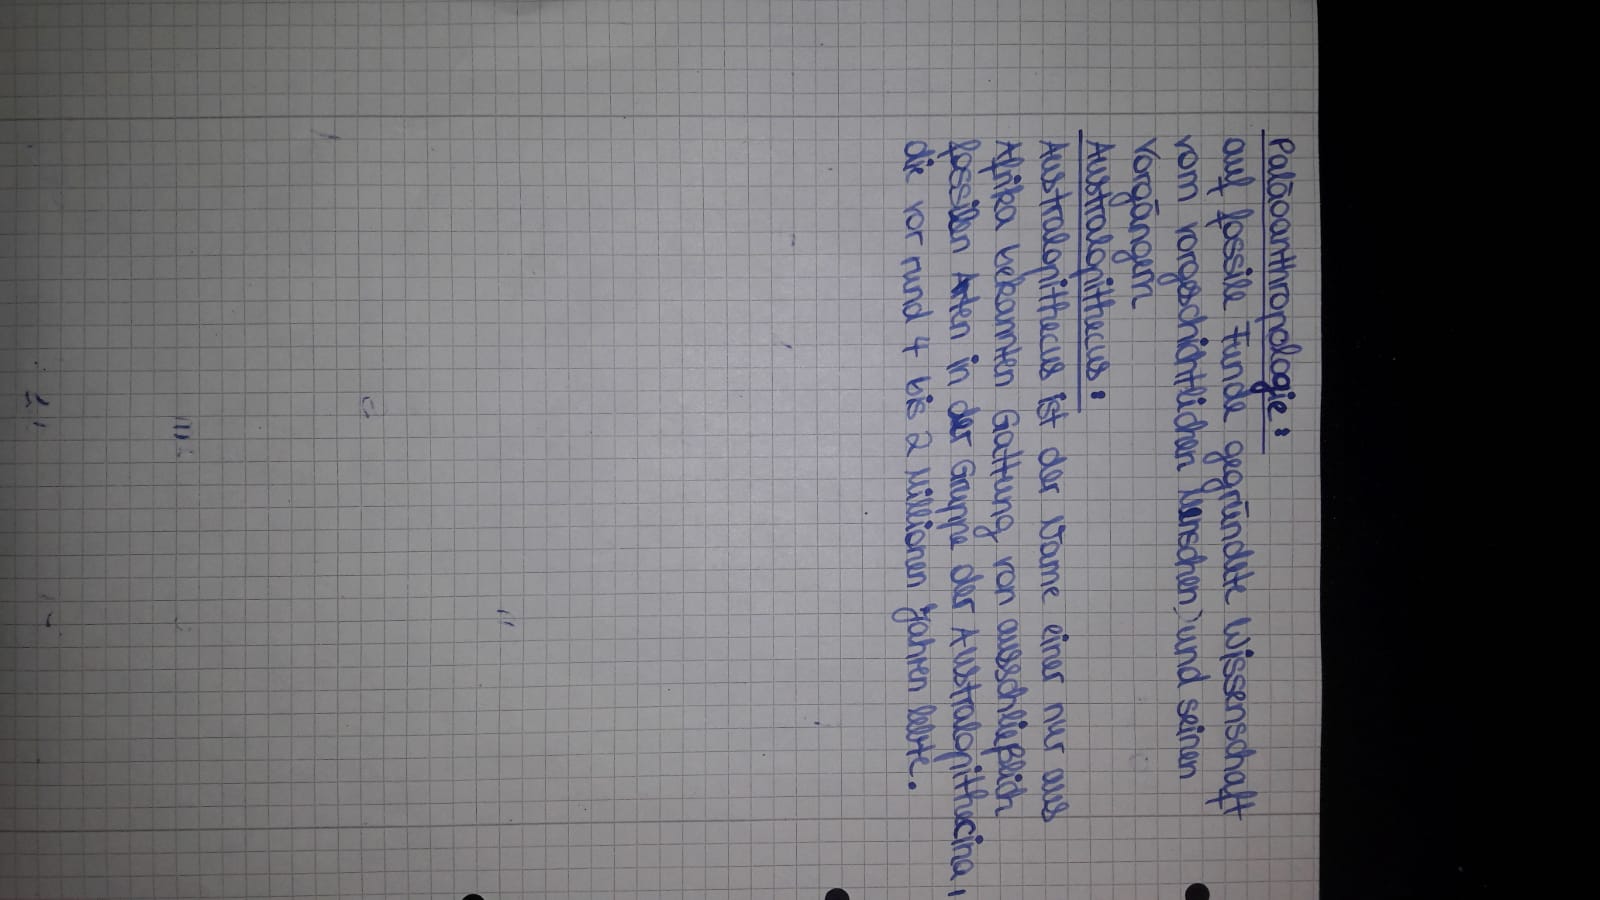 Paläoanthropologie:
auf fossile Funde gegründete Wissenschaft
vom vorgeschichtlichen Menschen, und seinen
Vorgängern
Australopithecus:
Australopithecus ist der Name einer nur aus
Afrika bekannten Gattung von ausschließlich
fossilen Arten in der Gruppe der Australopithecina,
die vor rund 4 bis 2 Millionen Jahren lebte.